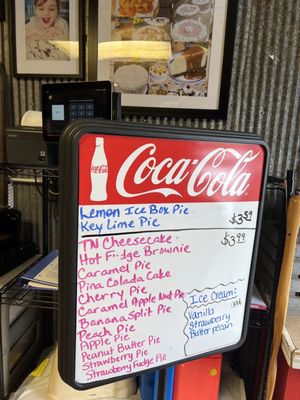 Coca-Cola
Coca-Cola
Lemon Ice Box Pie
Key Lime Pie $3.59
TN Cheesecake $3.99
Hot Fudge Brownie
Caramel Pie
Pina Colada Cake
Cherry Pie
Caramel Apple Nut Pie
Banana Split Pie
Peach Pie
Apple Pie
Peanut Butter Pie
Strawberry Pie
Strawberry Fudge Pie
Ice Cream:
Vanilla
Strawberry
Butter pecan